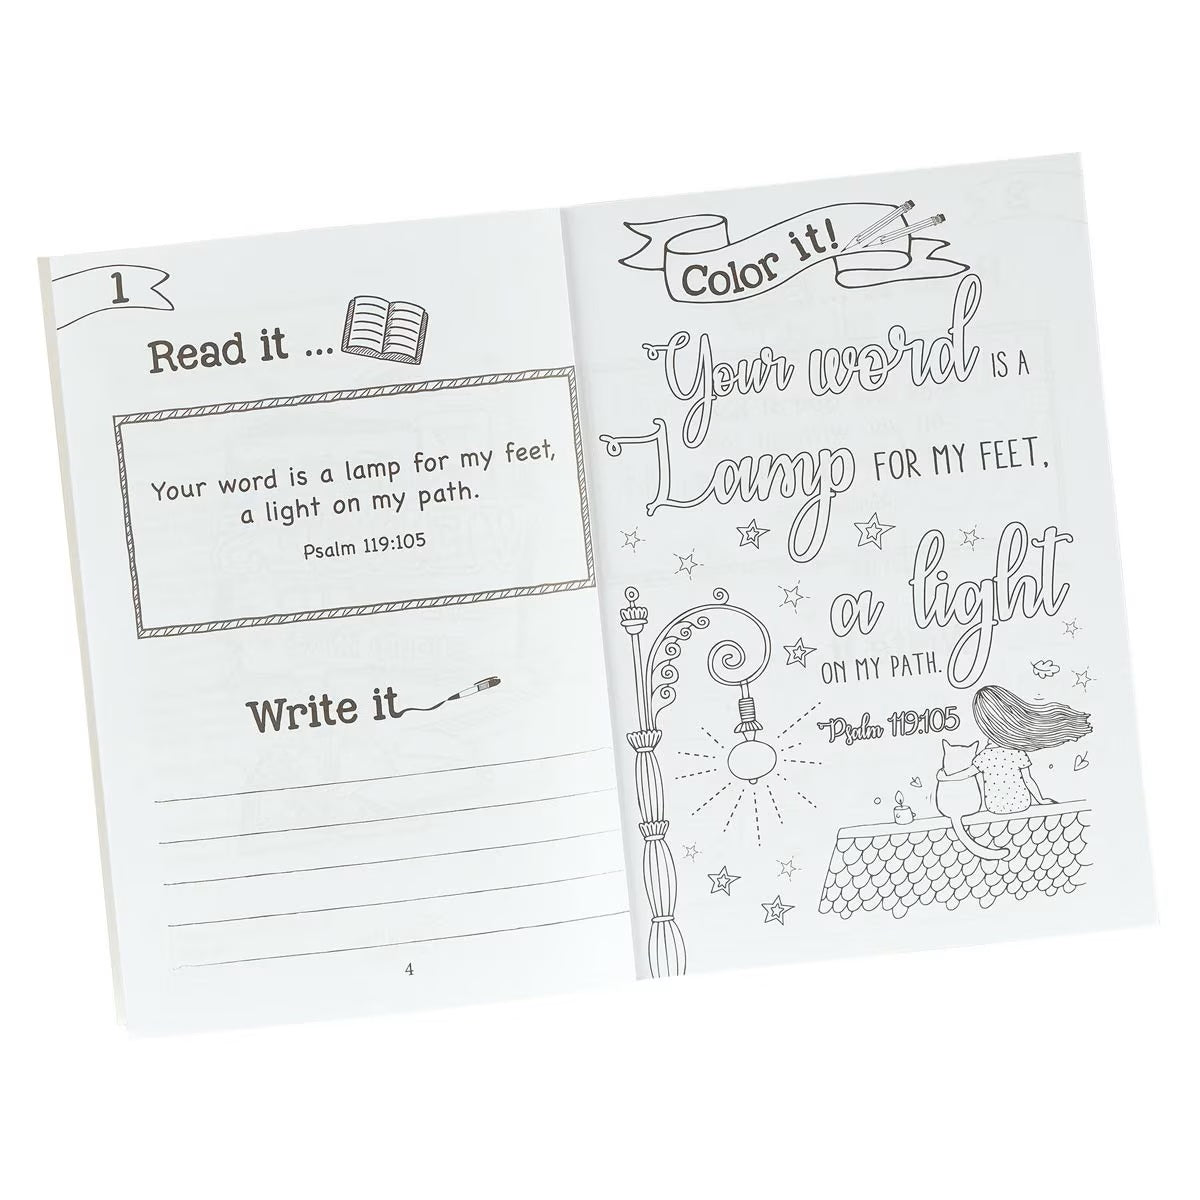 1
Read it ...
Your word is a lamp for my feet,
a light on my path.
Psalm 119:105
Write it
4
Color it!
Your word IS A
Lamp FOR MY FEET,
a light
ON MY PATH.
Psalm 119:105